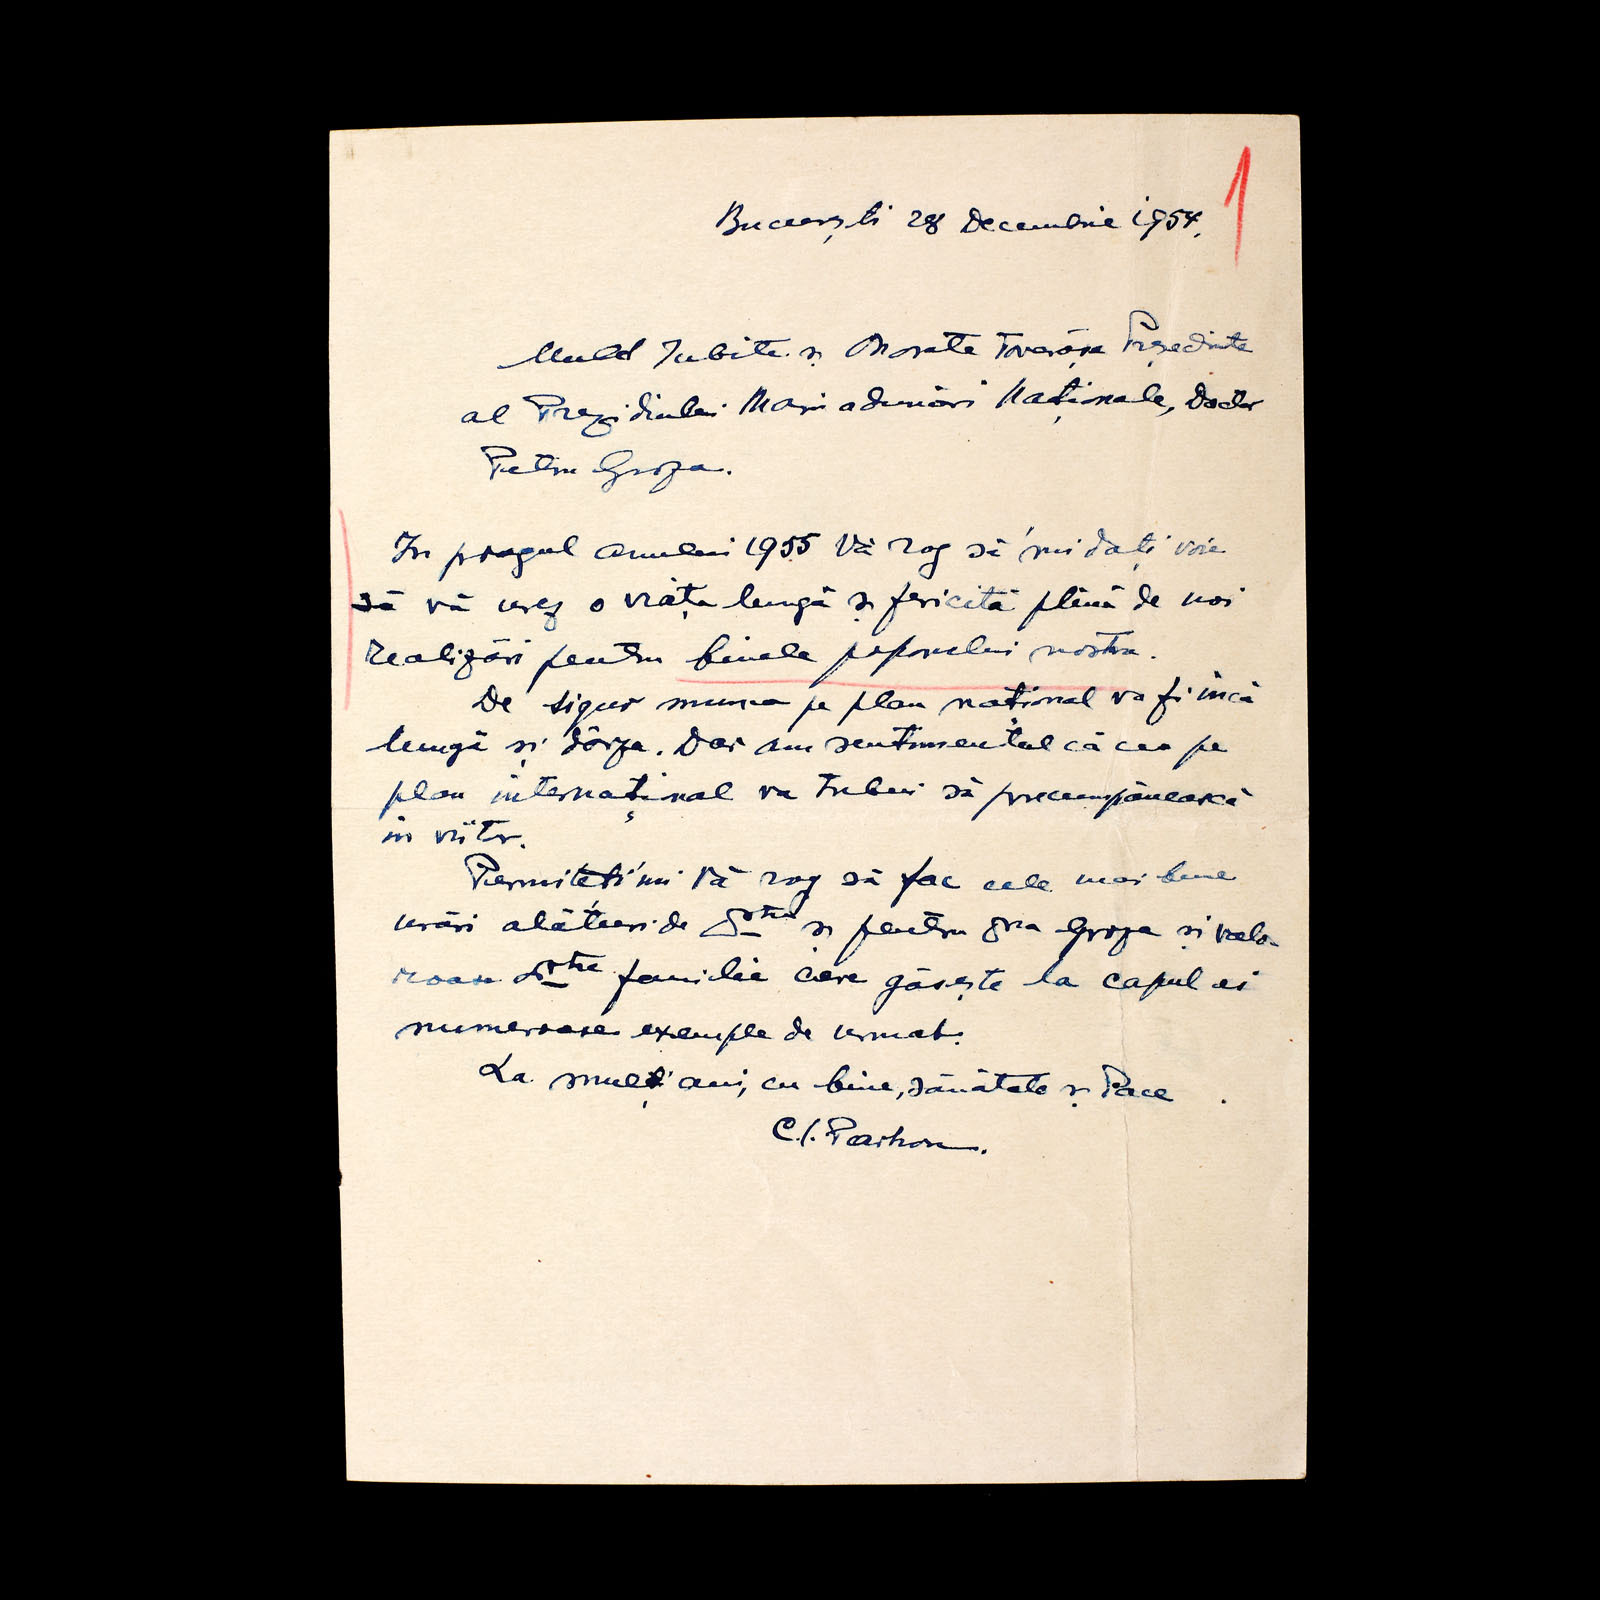 1
București 28 Decembrie 1954.
Mult Iubite și Onorate Tovarășe Președinte
al Prezidiului Marii adunări Naționale, Doctor
Petru Groza.
In pragul anului 1955 Vă rog să'mi dați voie
să vă urez o viață lungă și fericită plină de noi
realizări pentru binele poporului nostru.
De sigur munca pe plan național va fi încă
lungă și dârză. Dar am sentimentul că cea pe
plan internațional va trebui să precumpănească
în viitor.
Permiteți'mi Vă rog să fac cele mai bune
urări alături de și pentru Groza și valo-
roasa familie care găsește la capul ei
numeroase exemple de urmat.
La mulți ani, cu bine, sănătate și Pace
C.I. Parhon.